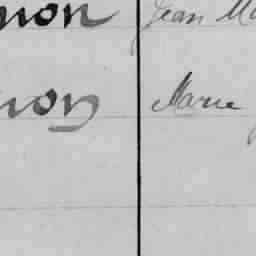 non Jean Ma
non Marie